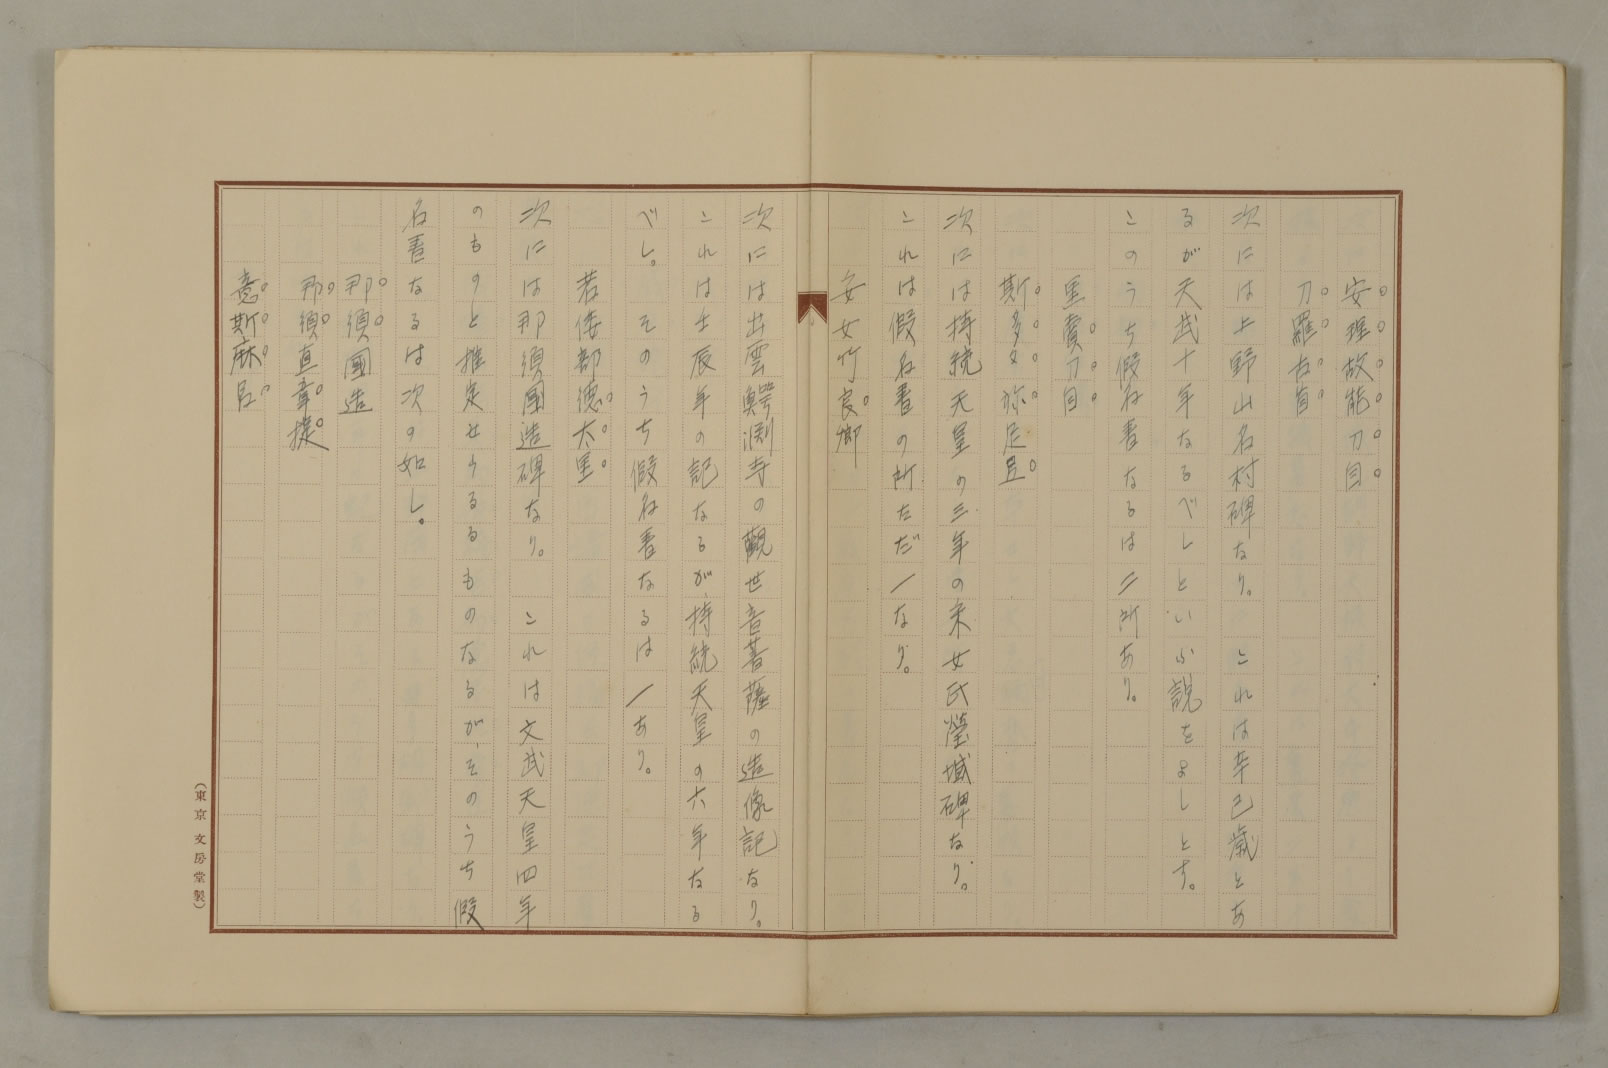 安理故能刀自
刀羅古自
次には上野山名村碑なり。これは辛己歳とあ
るが天武十年なるべしといふ説をよしとす。
このうち假名書なるは二所あり。
里賣刀自
斯多々弥足
次には持統天皇の三年の采女氏塋域碑なり。
これは假名書の所ただ一なり。
采女竹良卿
次には出雲鰐淵寺の觀世音菩薩の造像記なり。
これは壬辰年の記なるが、持統天皇の六年なる
べし。そのうち假名書なるは一あり。
若倭部德太里
次には那須國造碑なり。これは文武天皇四年
のものと推定せらるるものなるが、そのうち假
名書なるは次の如し。
那須國造
那須直韋提
意斯麻呂
(東京文房堂製)